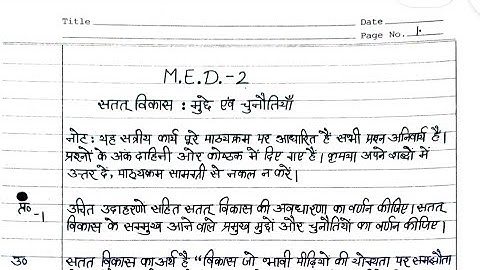 Title
Date
Page No. 1.
M.E.D.-2
सतत् विकास : मुद्दे एवं चुनौतियाँ
नोट : यह सत्रीय कार्य पूरे पाठ्यक्रम पर आधारित है सभी प्रश्न अनिवार्य है।
प्रश्नों के अंक दाहिनी ओर कोष्ठक में दिए गए हैं। कृपया अपने शब्दों में
उत्तर दें, पाठ्यक्रम सामग्री से नकल न करें।
प्र० -1 उचित उदाहरणो सहित सतत् विकास की अवधारणा का वर्णन कीजिए। सतत्
विकास के सम्मुख आने वाले प्रमुख मुद्दों और चुनौतियों का वर्णन कीजिए।
उ० सतत विकास का अर्थ है "विकास जो भावी पीढ़ियों की योग्यता पर समझौता